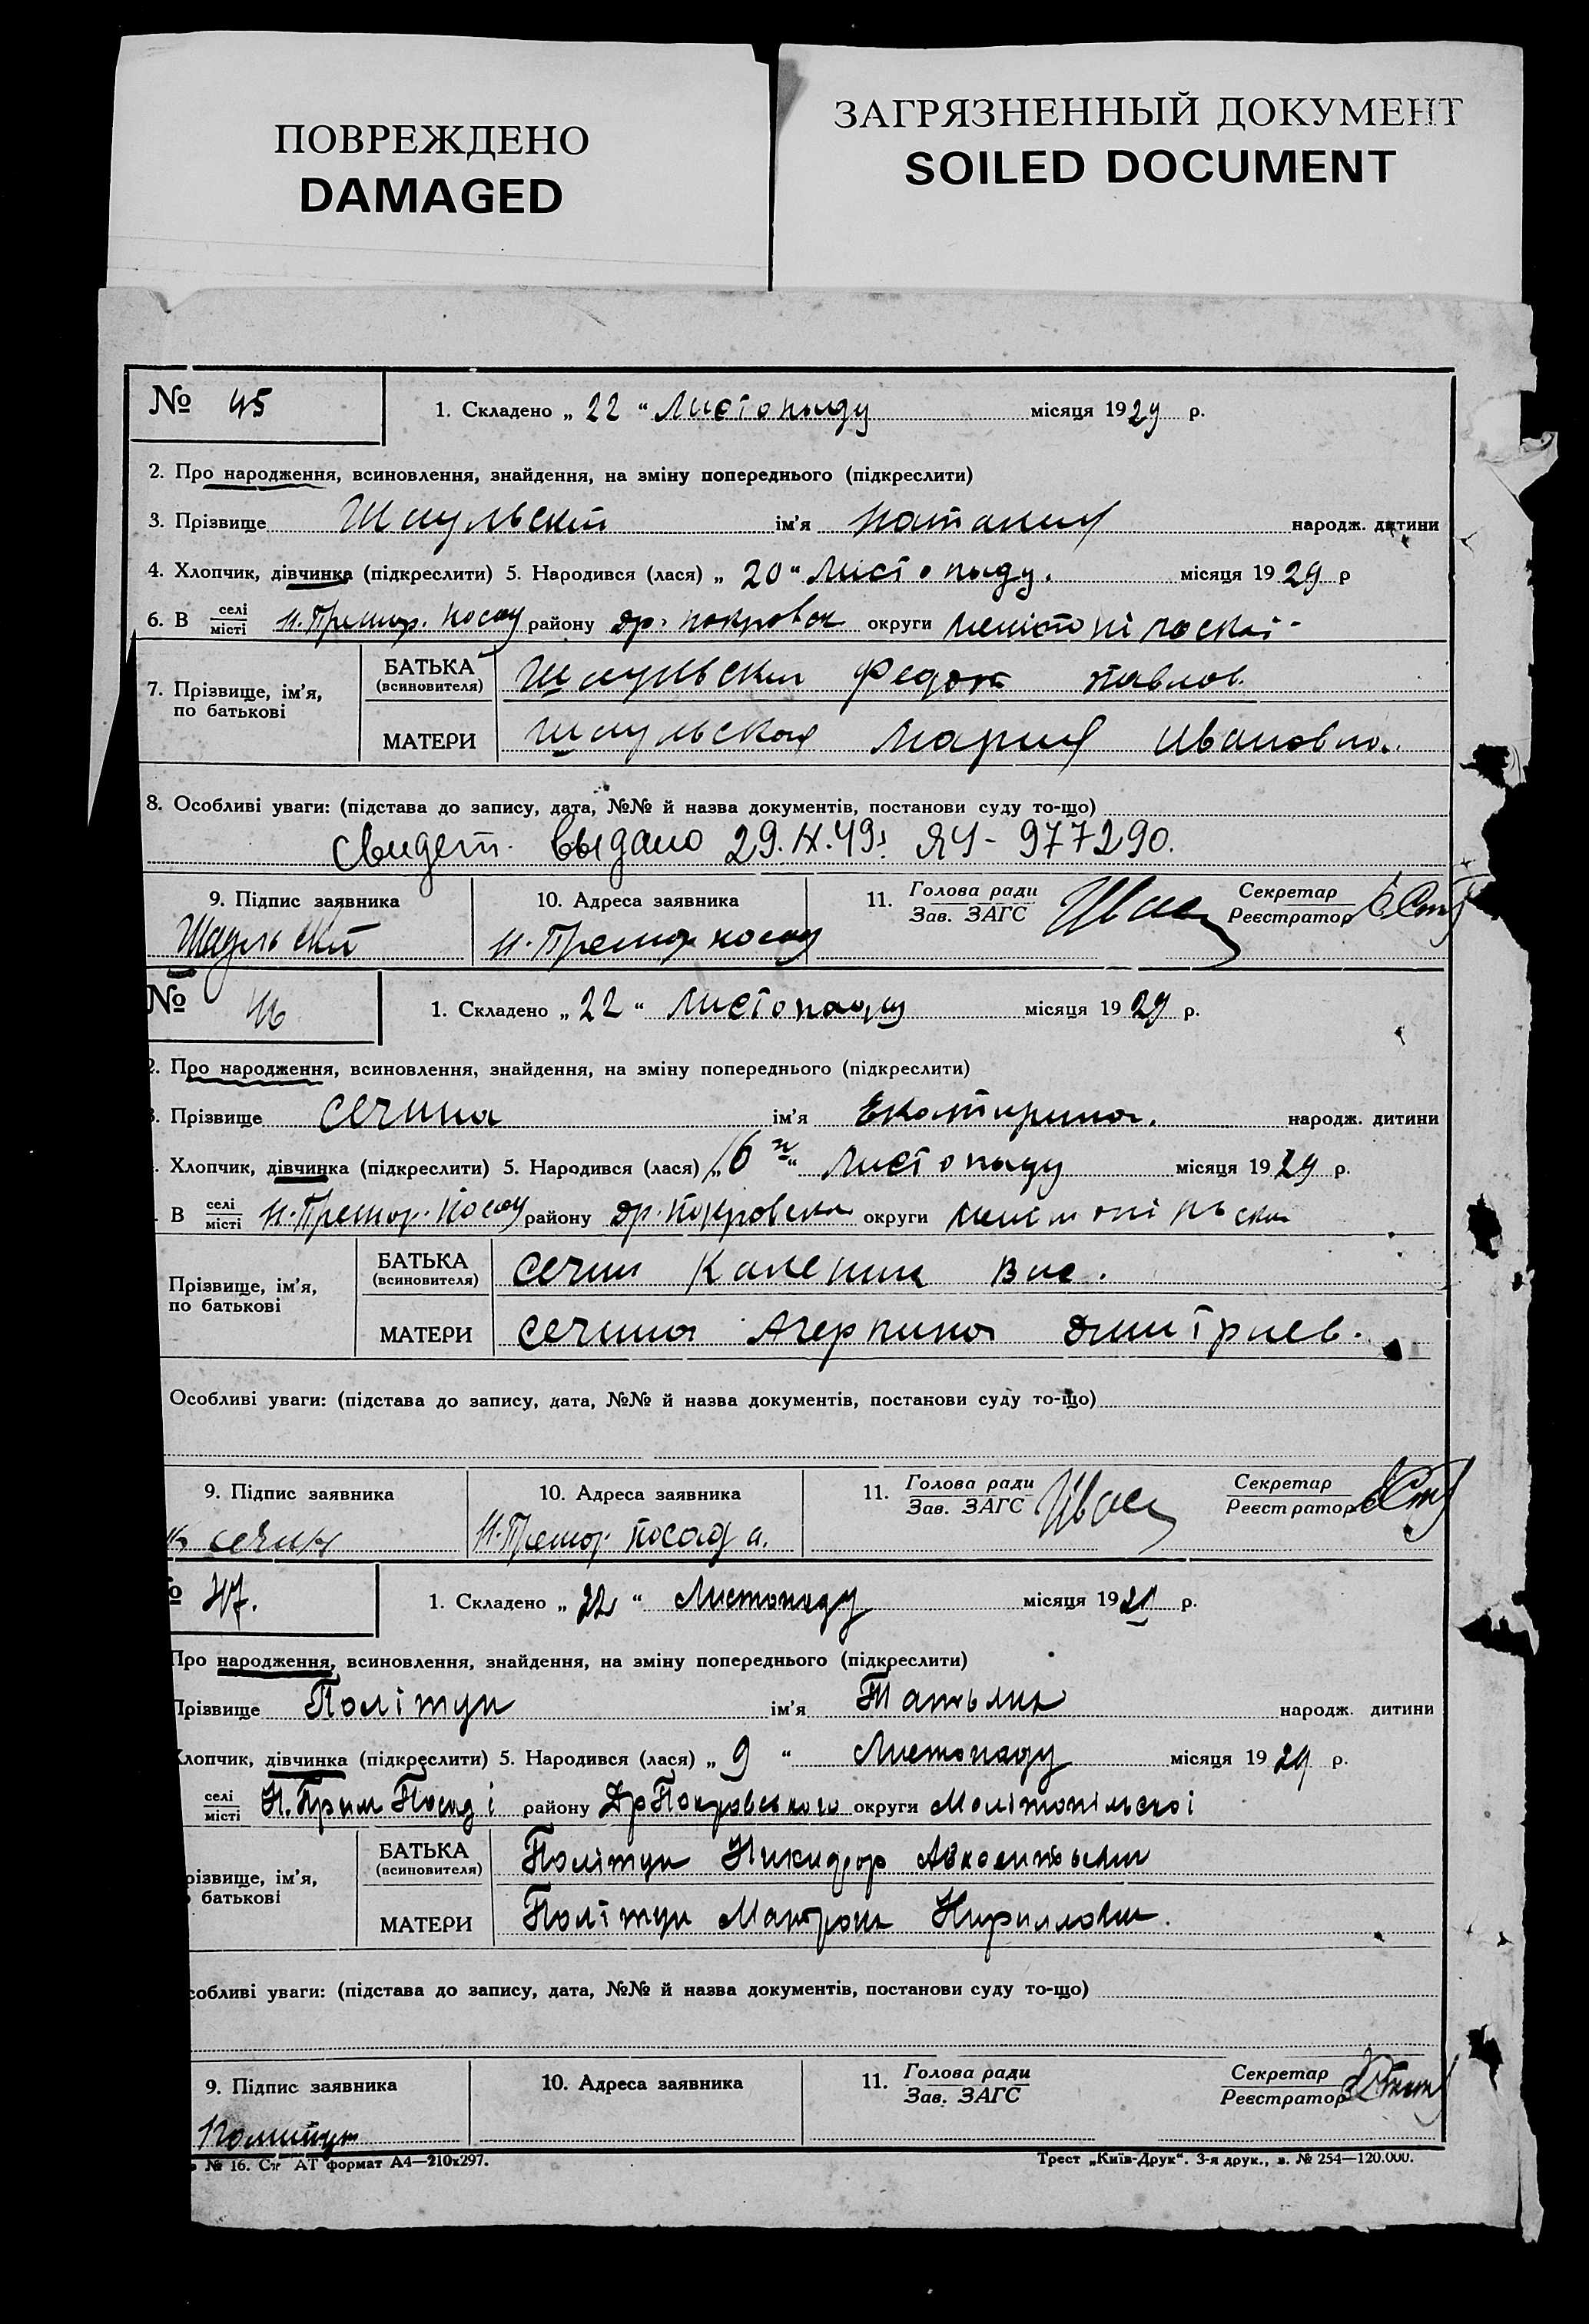 ПОВРЕЖДЕНО
DAMAGED
ЗАГРЯЗНЕННЫЙ ДОКУМЕНТ
SOILED DOCUMENT
№ 45
1. Складено „ 22 “ Листопаду місяця 1929 р.
2. Про народження, всиновлення, знайдення, на зміну попереднього (підкреслити)
3. Прізвище ім’я Наталия народж. дитини
4. Хлопчик, дівчинка (підкреслити) 5. Народився (лася) „ 20 “ Листопаду. місяця 1929 р
6. В селі місті Н. Примор. Посад району др. Покровск округи
7. Прізвище, ім’я, по батькові
БАТЬКА (всиновителя) Федот Павлов.
МАТЕРИ Мария Ивановна.
8. Особливі уваги: (підстава до запису, дата, №№ й назва документів, постанови суду то-що)
Свидет. выдано 29.IX.49г. ЯЧ - 977290.
9. Підпис заявника
10. Адреса заявника
11. Голова ради Зав. ЗАГС
Секретар Реєстратор
Н. Примор посад
№ 46
1. Складено „ 22 “ Листопаду місяця 1929 р.
2. Про народження, всиновлення, знайдення, на зміну попереднього (підкреслити)
3. Прізвище Сечина ім’я Екатирина. народж. дитини
. Хлопчик, дівчинка (підкреслити) 5. Народився (лася) „ 16 “ Листопаду місяця 1929 р.
. В селі місті Н. Примор. Посад району др. Покровска округи
Прізвище, ім’я, по батькові
БАТЬКА (всиновителя) Сечин Каленик Вас.
МАТЕРИ Сечина Агерпина Дмитриев.
Особливі уваги: (підстава до запису, дата, №№ й назва документів, постанови суду то-що)
9. Підпис заявника
10. Адреса заявника
11. Голова ради Зав. ЗАГС
Секретар Реєстратор
К сечин
Н. Примор. посада.
47.
1. Складено „ 22 “ Листопаду місяця 1929 р.
Про народження, всиновлення, знайдення, на зміну попереднього (підкреслити)
Прізвище Політун ім’я Татьяна народж. дитини
Хлопчик, дівчинка (підкреслити) 5. Народився (лася) „ 9 “ Листопаду місяця 1929 р.
селі місті Н. Прим Посаді району Др Покровського округи Мелітопільскоі
різвище, ім’я, батькові
БАТЬКА (всиновителя) Політун Никифор
МАТЕРИ Політун Матрона Кириловна.
собливі уваги: (підстава до запису, дата, №№ й назва документів, постанови суду то-що)
9. Підпис заявника
10. Адреса заявника
11. Голова ради Зав. ЗАГС
Секретар Реєстратор
Политун
№ 16. Ст АТ формат А4—210х297.
Трест „Київ-Друк“. 3-я друк., з. № 254—120.000.